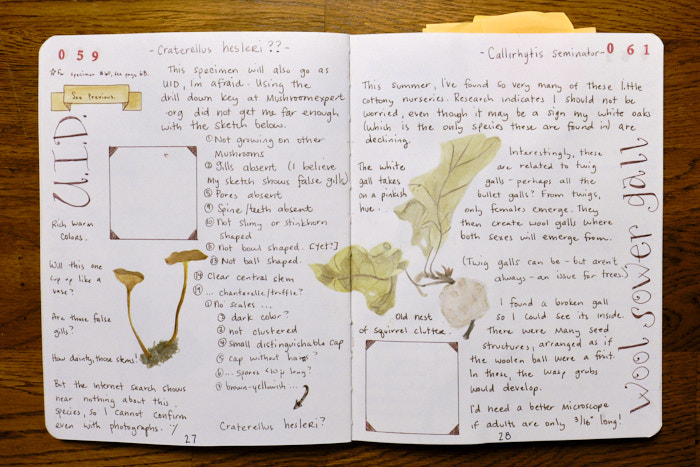 059
- Craterellus hesleri?? -
☆For specimen #60, see page 63.
See Previous.
U.I.D.
This specimen will also go as
UID, I'm afraid. Using the
drill down key at Mushroomexpert
.org did not get me far enough
with the sketch below.
① Not growing on other
Mushrooms
② Gills absent (I believe
My sketch shows false gills)
Pores absent
Spine/teeth absent
⑩ Not slimy or stinkhorn
shaped
Not bowl shaped. [yet?]
Not ball shaped.
Clear central stem
... chanterelle/truffle?
① No scales ...
② dark color?
③ not clustered
④ Small distinguishable cap
⑤ cap without holes?
⑥ ... spores <10µ long?
⑦ brown-yellowish ...
Craterellus hesleri?
Rich warm
colors.
Will this one
cup up like a
vase?
Are those false
gills?
How dainty, those stems!
But the Internet search shows
near nothing about this
species, so I cannot confirm
even with photographs. :/
27
- Callirhytis seminator -
061
This summer, I've found so very many of these little
cottony nurseries. Research indicates I should not be
worried, even though it may be a sign my white oaks
(which is the only species these are found in) are
declining.
The white
gall takes
on a pinkish
hue.
Interestingly, these
are related to twig
galls - perhaps all the
bullet galls? From twigs,
only females emerge. They
then create wool galls where
both sexes will emerge from.
(Twig galls can be - but aren't
always - an issue for trees.)
Old nest
of squirrel clutter.
I found a broken gall
so I could see its inside.
There were Many seed
structures, arranged as if
the woolen ball were a fruit.
In those, the wasp grubs
would develop.
I'd need a better microscope
if adults are only 3/16" long!
wool sower gall
28